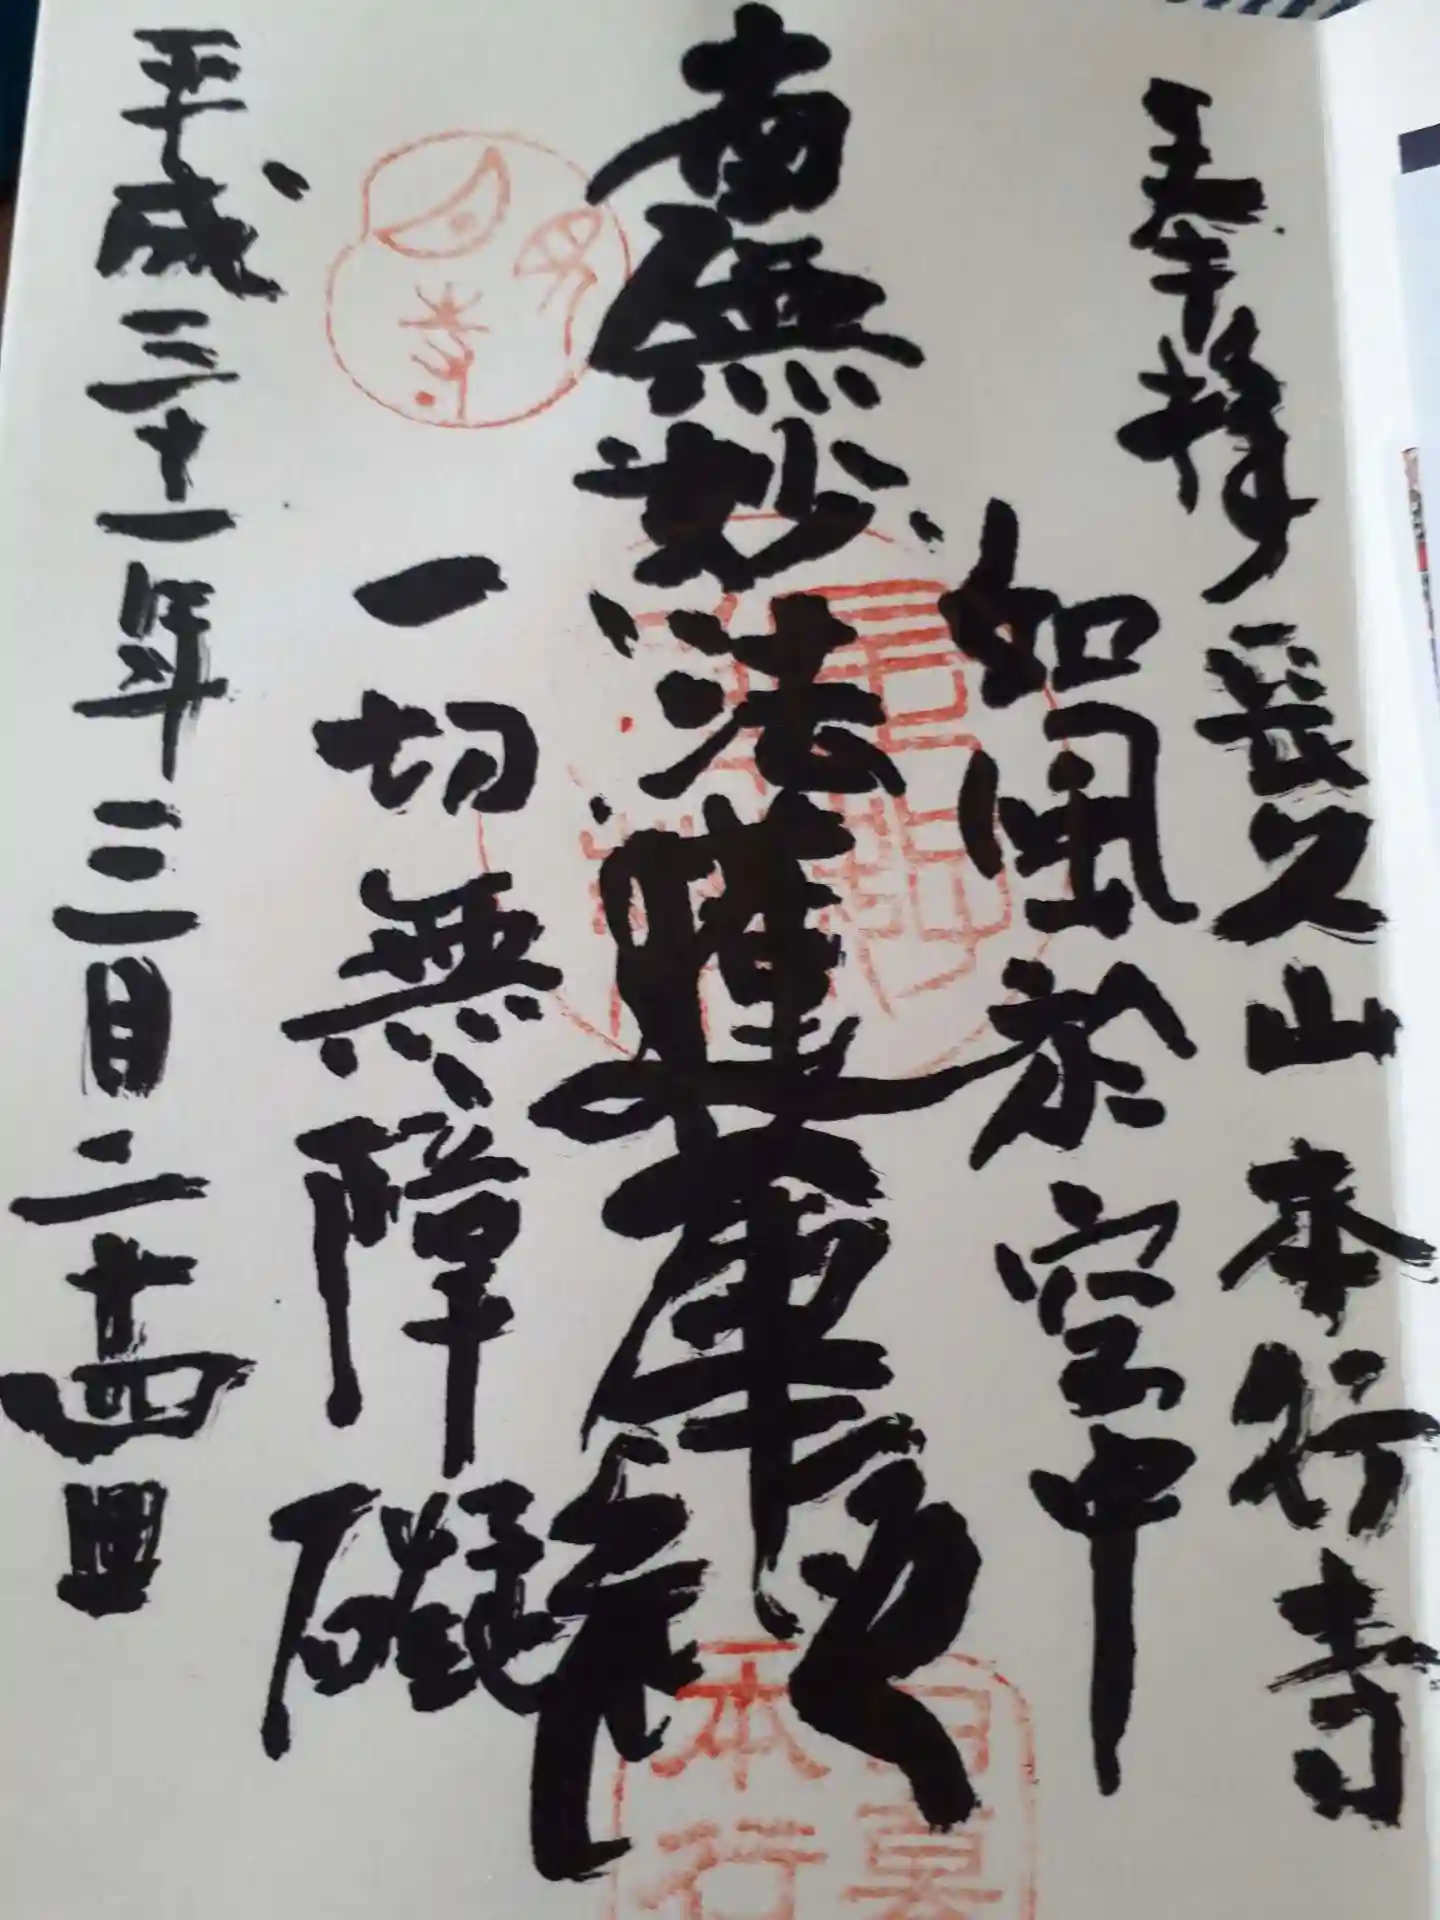 奉拝 長久山 本行寺
如風於空中
南無妙法蓮華経
一切無障礙
平成三十一年三月二十四日
日暮
本行